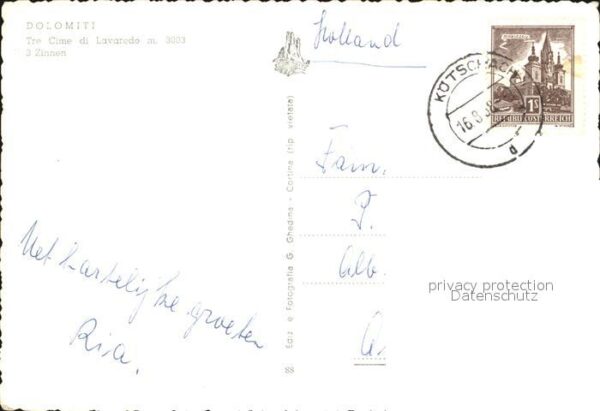 DOLOMITI
Tre Cime di Lavaredo m. 3003
3 Zinnen
Holland
KÖTSCHACH
16.8.
1S
REPUBLIK ÖSTERREICH
Fam.
P.
Alb.
Met hartelijke groeten
Ria.
Ediz. e Fotografia G. Ghedina - Cortina (rip. vietata)
88
privacy protection
Datenschutz